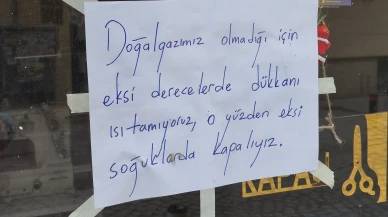 Doğalgazımız olmadığı için
eksi derecelerde dükkanı
ısıtamıyoruz, o yüzden eksi
soğuklarda kapalıyız.